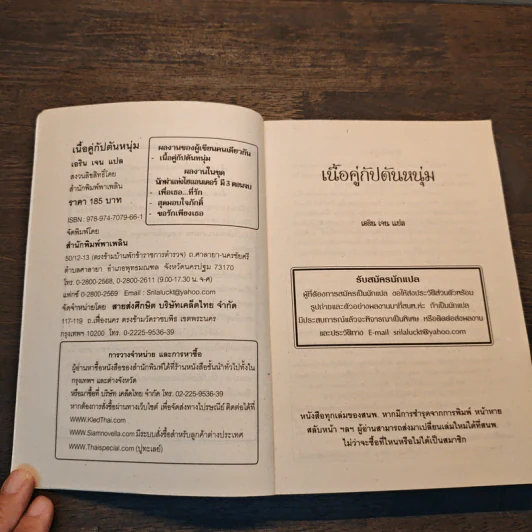 เนื้อคู่กัปตันหนุ่ม
เอริน เจน แปล
สงวนลิขสิทธิ์โดย
สำนักพิมพ์พาเพลิน
ราคา 185 บาท
ISBN : 978-974-7079-66-1
จัดพิมพ์โดย
สำนักพิมพ์พาเพลิน
50/12-13 (ตรงข้ามบ้านพักข้าราชการตำรวจ) ถ.ศาลายา-นครชัยศรี
ตำบลศาลายา อำเภอพุทธมณฑล จังหวัดนครปฐม 73170
โทร. 0-2800-2568, 0-2800-2611 (9.00-17.30 น. จ-ศ)
แฟกซ์ 0-2800-2569 Email : Srilaluckt@yahoo.com
จัดจำหน่ายโดย สายส่งศึกษิต บริษัทเคล็ดไทย จำกัด
117-119 ถ.เฟื่องนคร ตรงข้ามวัดราชบพิธ เขตพระนคร
กรุงเทพฯ 10200 โทร. 0-2225-9536-39
ผลงานของผู้เขียนคนเดียวกัน
- เนื้อคู่กัปตันหนุ่ม
ผลงานในชุด
มี 3 ตอนจบ
- เพื่อเธอ...ที่รัก
- สุดขอบใจภักดิ์
- ขอรักเพียงเธอ
การวางจำหน่าย และการหาซื้อ
ผู้อ่านหาซื้อหนังสือของสำนักพิมพ์ได้ที่ร้านหนังสือชั้นนำทั่วไปทั้งใน
กรุงเทพฯ และต่างจังหวัด
หรือมาซื้อที่ บริษัท เคล็ดไทย จำกัด โทร. 02-225-9536-39
หากต้องการสั่งซื้อผ่านทางเว็บไซต์ เพื่อจัดส่งทางไปรษณีย์ ติดต่อได้ที่
WWW.KledThai.com
WWW.Siamnovella.com มีระบบสั่งซื้อสำหรับลูกค้าต่างประเทศ
WWW.Thaispecial.com (ปูทะเลย์)
เนื้อคู่กัปตันหนุ่ม
เอริน เจน แปล
รับสมัครนักแปล
ผู้ที่ต้องการสมัครเป็นนักแปล ขอให้ส่งประวัติส่วนตัวพร้อม
รูปถ่ายและตัวอย่างผลงานมาที่สนพ.ค่ะ ถ้าเป็นนักแปล
มีประสบการณ์แล้วจะพิจารณาเป็นพิเศษ หรือติดต่อส่งผลงาน
และประวัติทาง E-mail srilaluckt@yahoo.com
หนังสือทุกเล่มของสนพ. หากมีการชำรุดจากการพิมพ์ หน้าหาย
สลับหน้า ฯลฯ ผู้อ่านสามารถส่งมาเปลี่ยนเล่มใหม่ได้ที่สนพ.
ไม่ว่าจะซื้อที่ไหนหรือไม่ได้เป็นสมาชิก